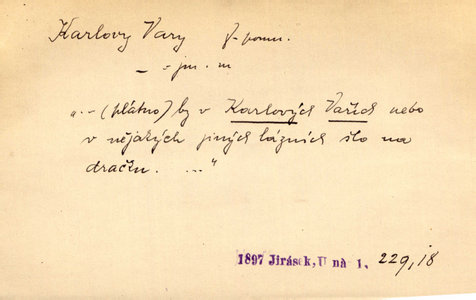 Karlovy Vary
— v jm. m
„.– (plátno) by v Karlových Vařích nebo
v nějakých jiných lázních šlo na
dračku. ..."
1897 Jirásek, U nà 1. 229,18